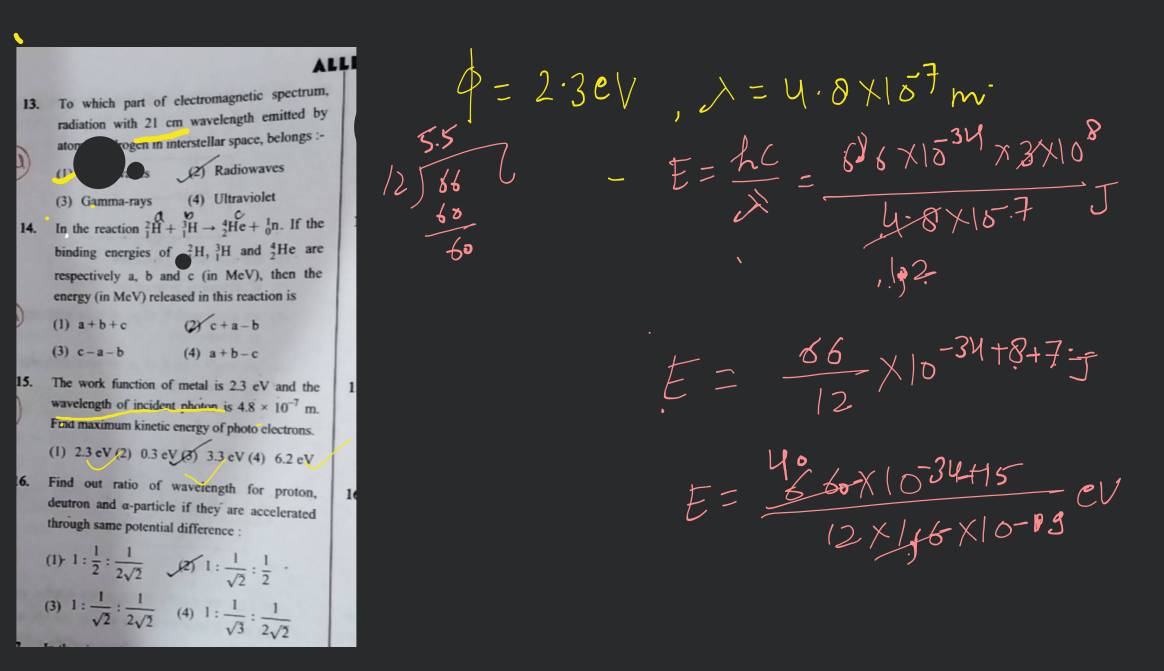 ALL
13. To which part of electromagnetic spectrum,
radiation with 21 cm wavelength emitted by
in interstellar space, belongs :-
(2) Radiowaves
(3) Gamma-rays (4) Ultraviolet
a b c
14. In the reaction ²₁H + ³₁H → ⁴₂He + ¹₀n. If the
binding energies of ²H, ³₁H and ⁴₂He are
respectively a, b and c (in MeV), then the
energy (in MeV) released in this reaction is
(1) a + b + c (2) c + a – b
(3) c – a – b (4) a + b – c
15. The work function of metal is 2.3 eV and the
wavelength of incident photon is 4.8 × 10⁻⁷ m.
Find maximum kinetic energy of photo electrons.
(1) 2.3 eV (2) 0.3 eV (3) 3.3 eV (4) 6.2 eV
6. Find out ratio of wavelength for proton,
deutron and α-particle if they are accelerated
through same potential difference :
(1) 1 : 1/2 : 1/2√2 (2) 1 : 1/√2 : 1/2
(3) 1 : 1/√2 : 1/2√2 (4) 1 : 1/√3 : 1/2√2
ϕ = 2.3eV , λ = 4.8×10⁻⁷ m
5.5
12)66
60
60
E = hc/λ = 6.6 ×10⁻³⁴ × 3×10⁸ / 4.8×10⁻⁷ J
E = 66/12 ×10⁻³⁴⁺⁸⁺⁷ J